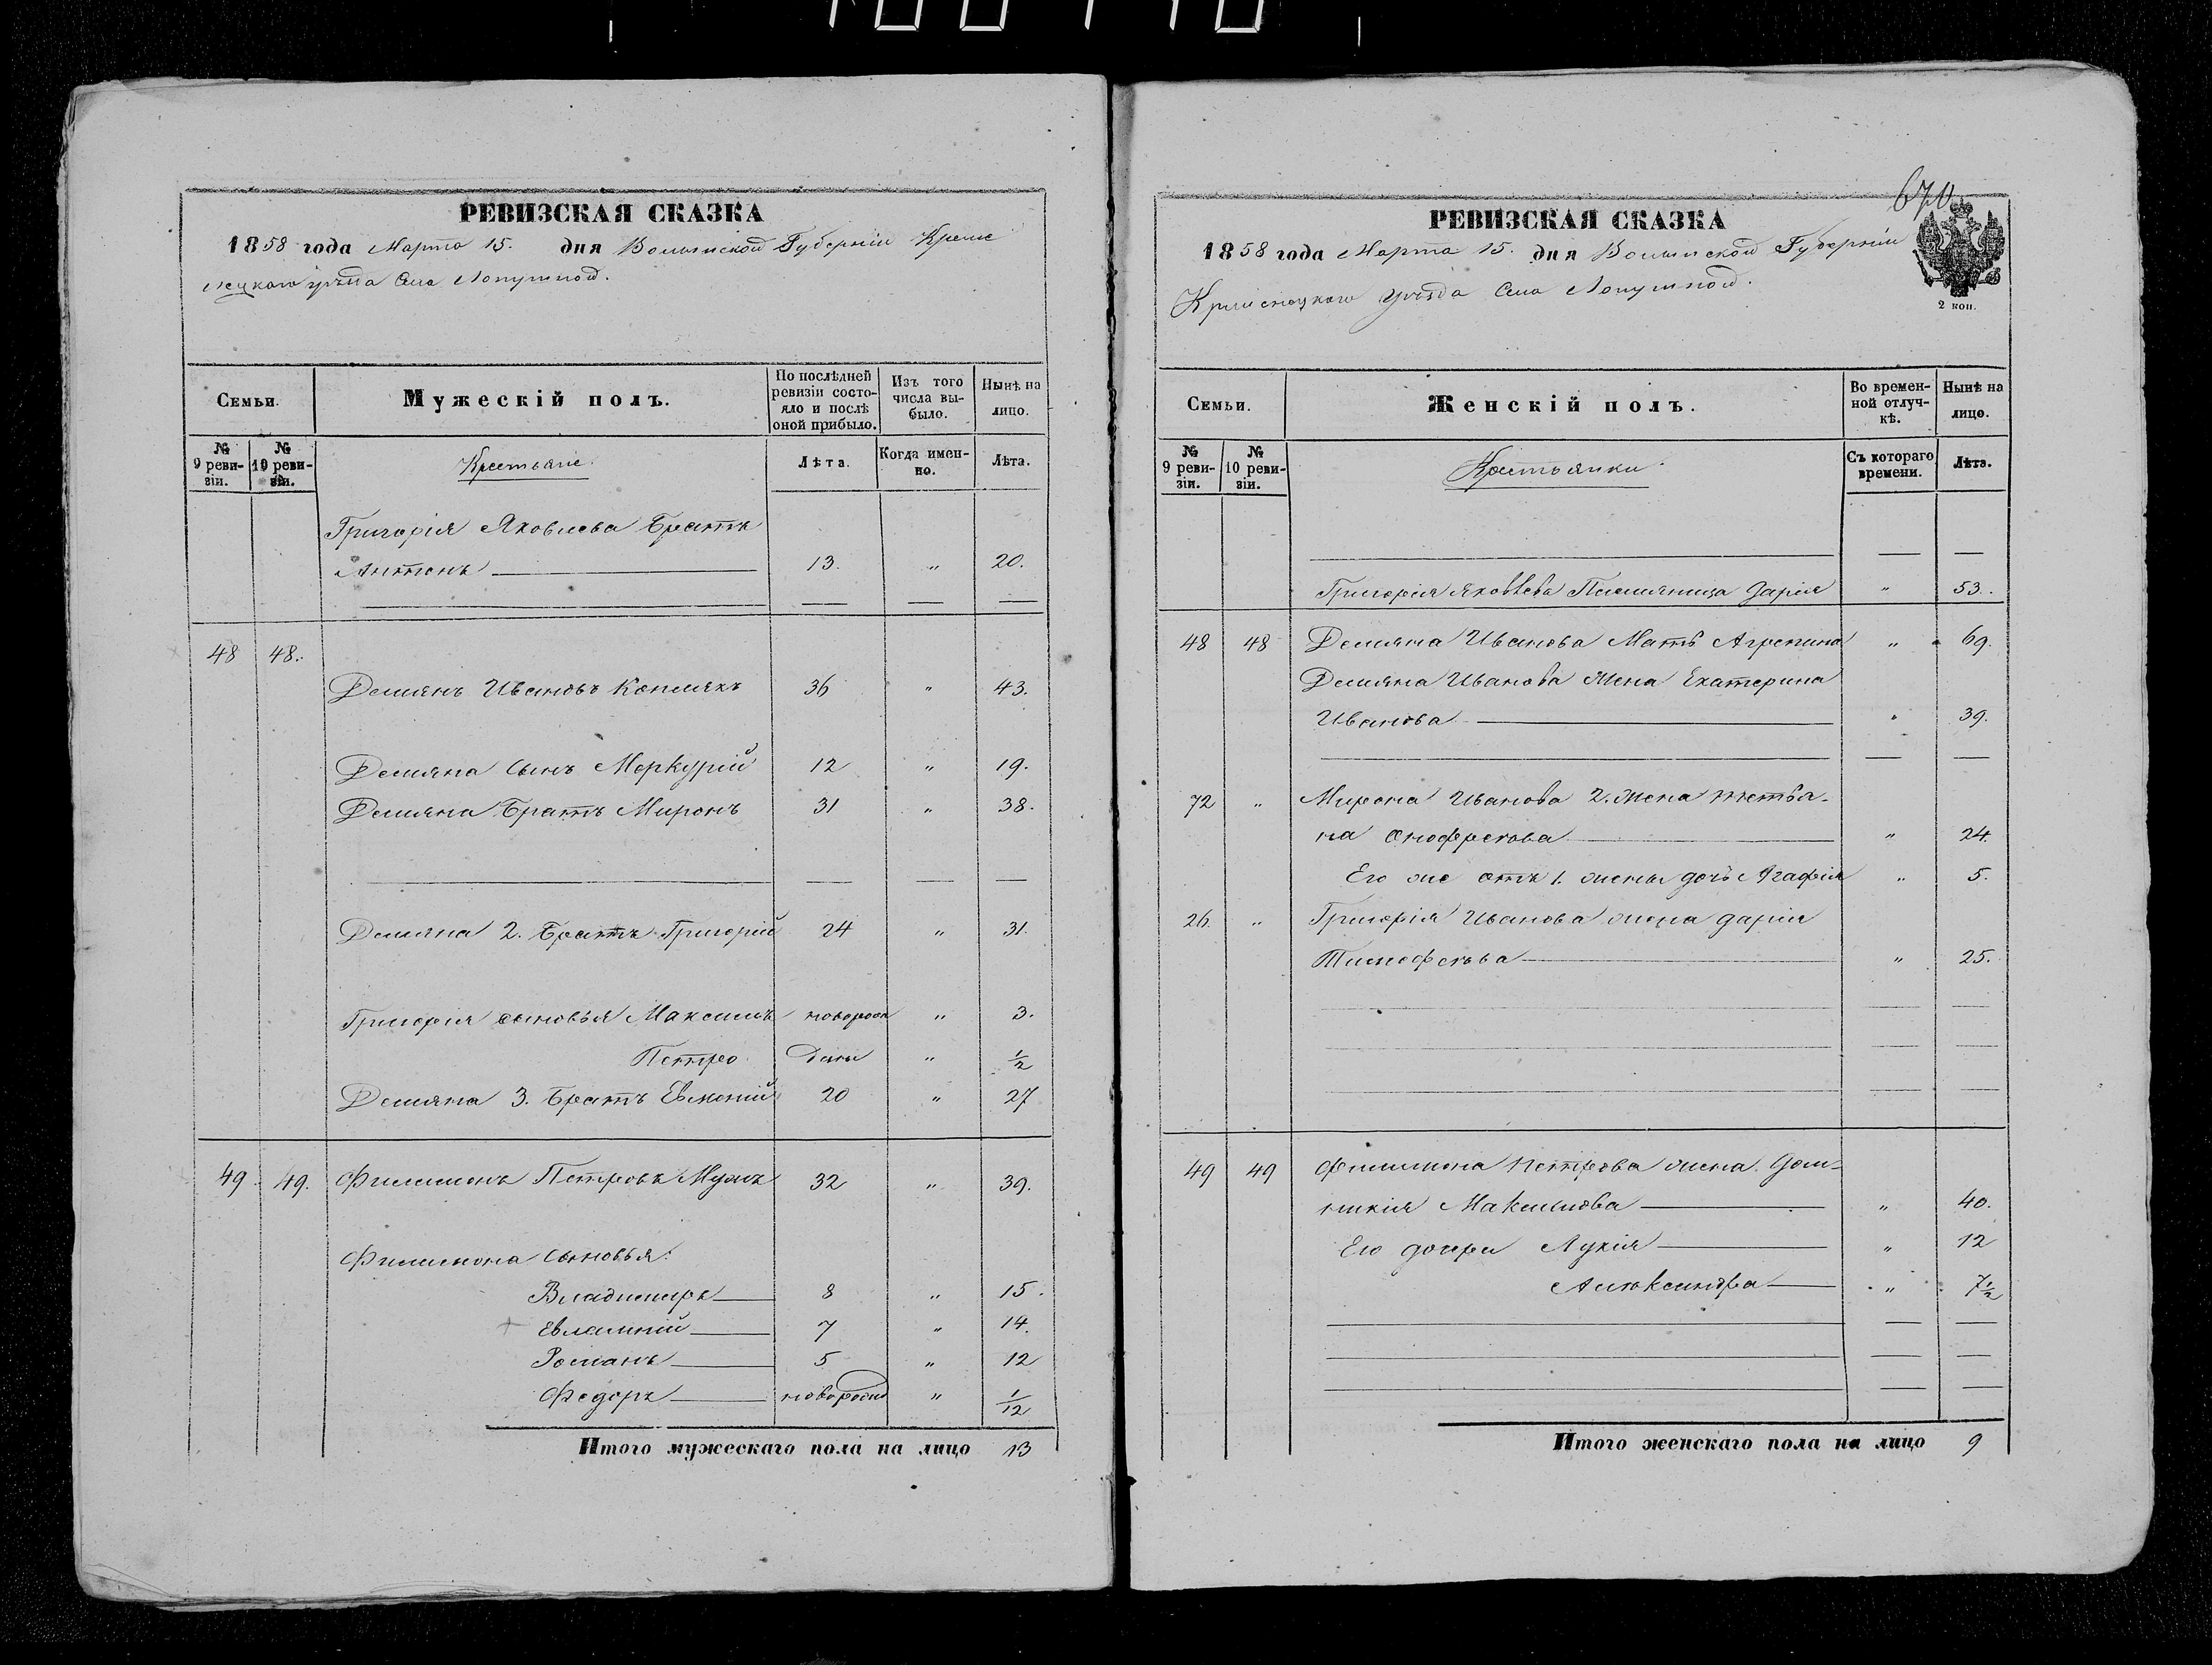 РЕВИЗСКАЯ СКАЗКА
1858 года Марта 15. дня Волынской Губерніи Креме
нецкаго уѣзда Села Лопушной.
Семьи.
Мужескій полъ.
По послѣдней ревизіи состояло и послѣ оной прибыло.
Изъ того числа выбыло.
Нынѣ на лицо.
№ 9 ревизіи.
№ 10 ревизіи.
Крестьяне.
Лѣта.
Когда именно.
Лѣта.
Григорія Яковлева Братъ
Антонъ 13. " 20.
48 48.
Демянъ Ивановъ 36 " 43.
Демяна Сынъ Меркурій 12 " 19.
Демяна Братъ Миронъ 31 " 38.
Демяна 2. Братъ Григорій 24 " 31.
Григорія сыновья Максимъ новорож " 3.
Петро дены " 1/2
Демяна 3. Братъ 20 " 27
49. 49. Филимонъ Петровъ 32 " 39.
Филимона Сыновья:
Владимиръ 8 " 15.
Евлампій 7 " 14.
Романъ 5 " 12
Федоръ " 1/12
Итого мужескаго пола на лицо 13
670
РЕВИЗСКАЯ СКАЗКА
1858 года Марта 15. дня Волынской Губерніи
Кременецкаго уѣзда Села Лопушной.
2 коп.
Семьи.
Женскій полъ.
Во временной отлучкѣ.
Нынѣ на лицо.
№ 9 ревизіи.
№ 10 ревизіи.
Крестьянки.
Съ котораго времени.
Лѣта.
Григорія Яковлева Племяница Дарія " 53.
48 48 Демяна Иванова Мать Агрепина " 69.
Демяна Иванова Жена Екатерина
Иванова " 39.
72 " Мирона Иванова 2. жена Тетья-
на Оноферева " 24.
Его же отъ 1. жены дочь Агафія " 5.
26. " Григорія Иванова жена Дарія
Тимофеева " 25.
49 49 Филимона Петрова жена Дом-
никія Максимова " 40.
Его дочери Лукія " 12
Александра " 7 1/2
Итого женскаго пола на лицо 9